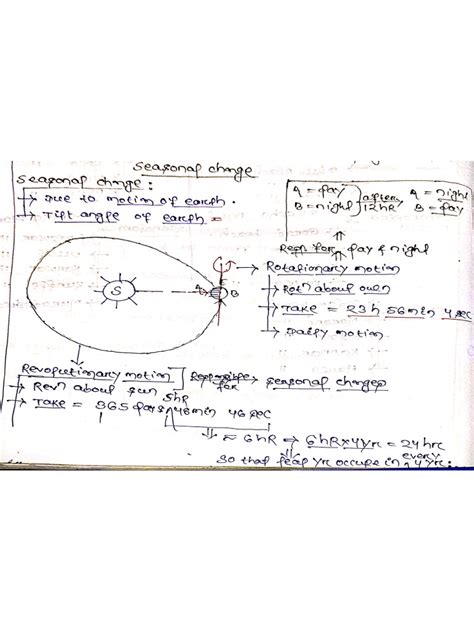 Seasonal change
Seasonal change :
→ Due to motion of earth.
→ Tilt angle of earth =
A = Day
B = night
after
12 hR
A = night
B = Day
Resn for Day & night
→ Rotationary motion
→ Rotn about own
→ Take = 23h 56min 4 sec
→ Daily motion
S
A
E
B
Revolutionary motion] Responsible for → seasonal changes
→ Revn about sun
→ Take = 365 days 5hR 48min 46 sec
≈ 6 hR ⇒ 6hR×4yr = 24 hrs
So that leap yr occupe in every 4 yrs.